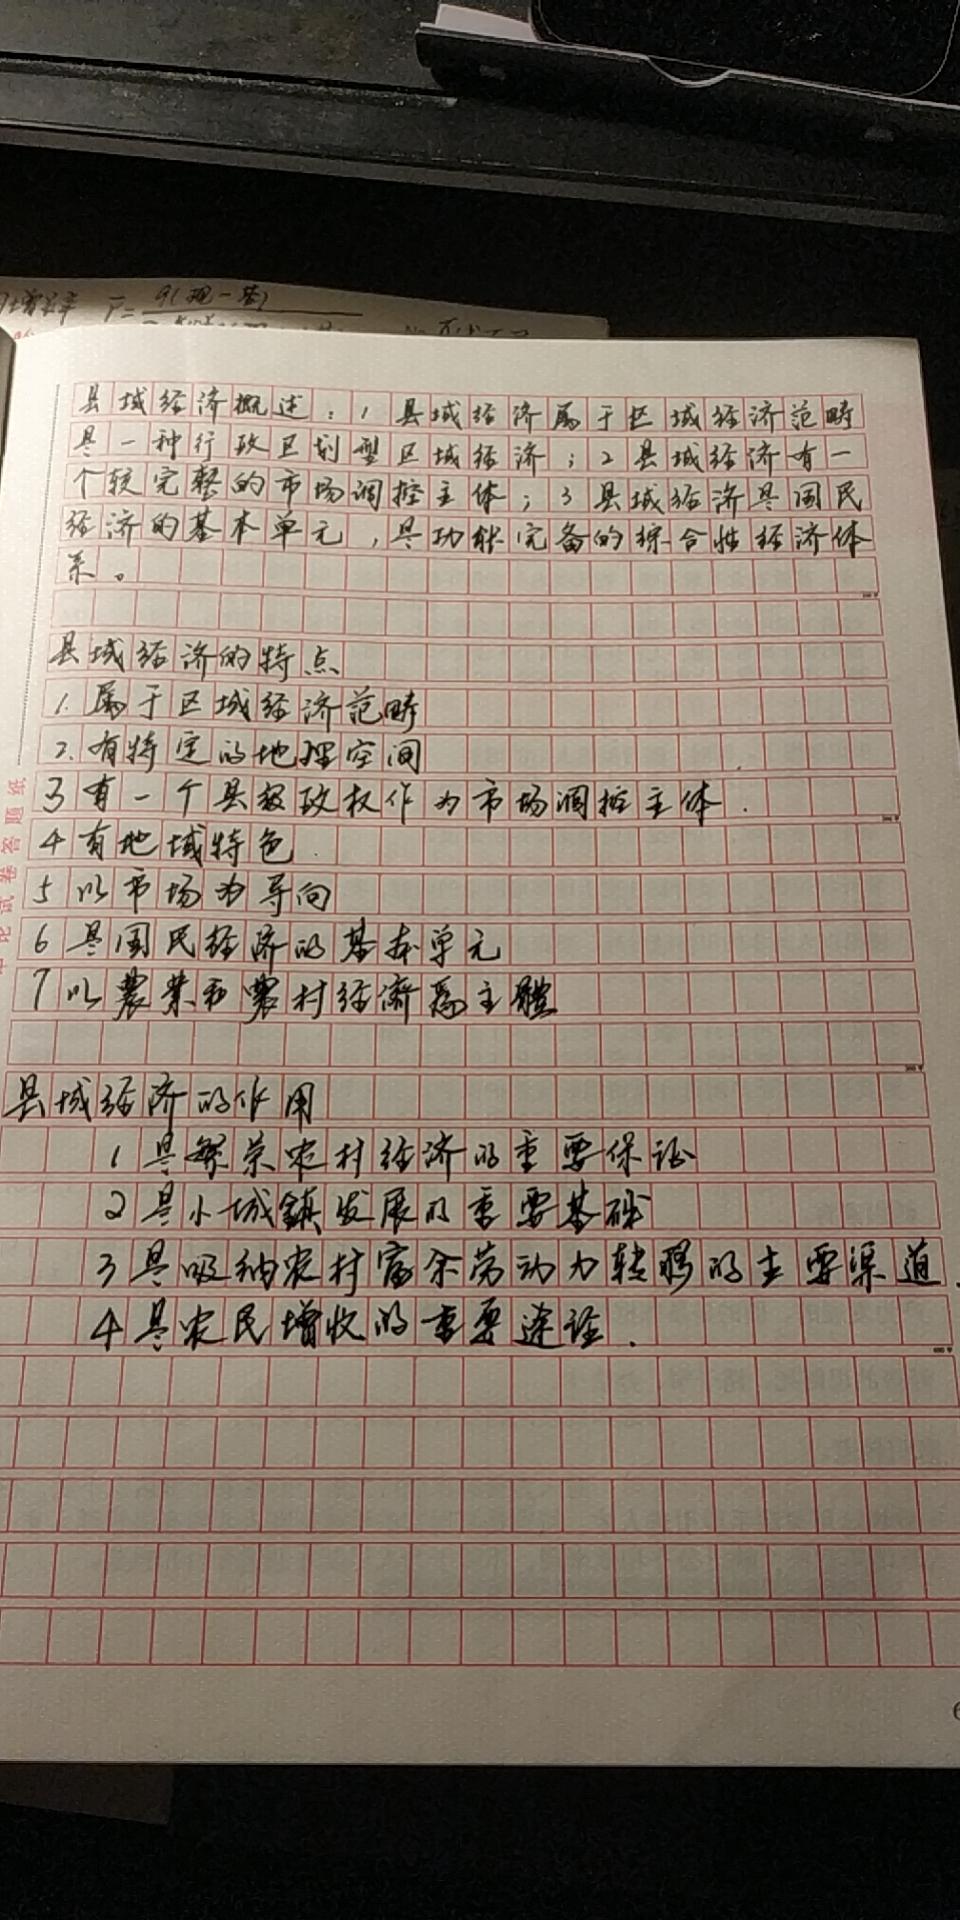 r̄=
县域经济概述：1县域经济属于区域经济范畴
是一种行政区划型区域经济；2县域经济有一
个较完整的市场调控主体；3县域经济是国民
经济的基本单元，是功能完备的综合性经济体
系。
县域经济的特点
1.属于区域经济范畴
2.有特定的地理空间
3有一个县级政权作为市场调控主体.
4有地域特色
5以市场为导向
6是国民经济的基本单元
7以農業和農村经濟爲主體
县域经济的作用
1是繁荣农村经济的重要保证
2是小城鎮发展的重要基础
3是吸纳农村富余劳动力转移的主要渠道.
4是农民增收的重要途径.
试卷答题纸
6